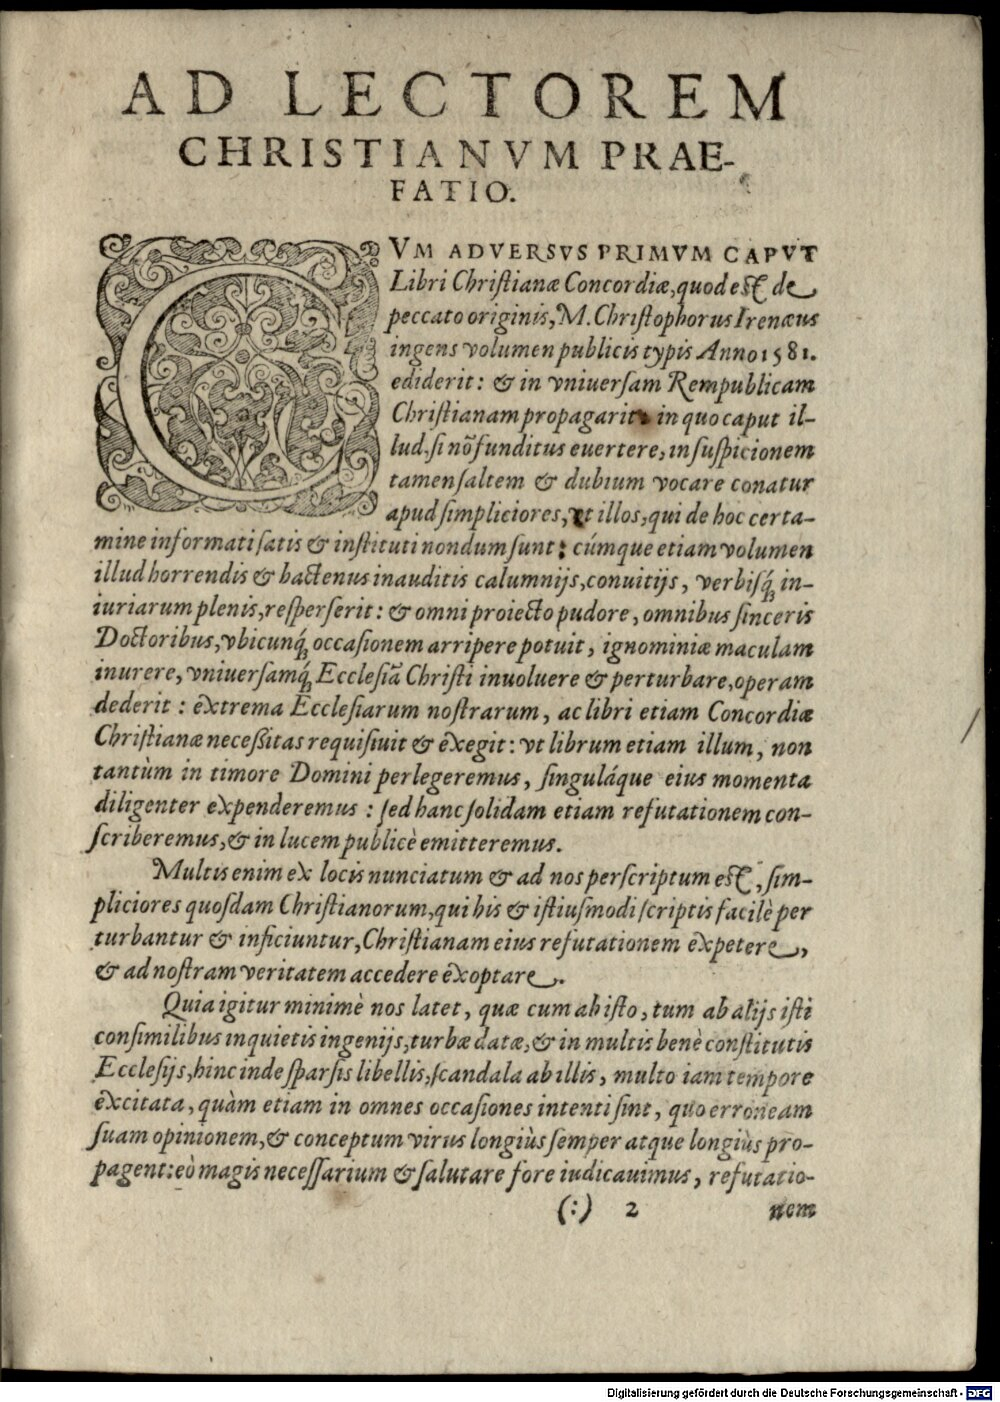 AD LECTOREM
CHRISTIANVM PRAE-
FATIO.
CVM ADVERSVS PRIMVM CAPVT
Libri Christianæ Concordiæ, quod est de
peccato originis, M. Christophorus Irenæus
ingens volumen publicis typis Anno 1581.
ediderit: & in vniuersam Rempublicam
Christianam propagarit: in quo caput il-
lud, si nõ funditus euertere, in suspicionem
tamen saltem & dubium vocare conatur
apud simpliciores, et illos, qui de hoc certa-
mine informati satis & instituti nondum sunt: cúmque etiam volumen
illud horrendis & hactenus inauditis calumnijs, conuitijs, verbisq́; in-
iuriarum plenis, resperserit: & omni proiecto pudore, omnibus sinceris
Doctoribus, vbicunq́; occasionem arripere potuit, ignominiæ maculam
inurere, vniuersamq́; Ecclesiã Christi inuoluere & perturbare, operam
dederit: extrema Ecclesiarum nostrarum, ac libri etiam Concordiæ
Christianæ necessitas requisiuit & exegit: vt librum etiam illum, non
tantùm in timore Domini perlegeremus, singuláque eius momenta
diligenter expenderemus: sed hanc solidam etiam refutationem con-
scriberemus, & in lucem publicè emitteremus.
Multis enim ex locis nunciatum & ad nos perscriptum est, sim-
pliciores quosdam Christianorum, qui his & istiusmodi scriptis facilè per
turbantur & inficiuntur, Christianam eius refutationem expetere,
& ad nostram veritatem accedere exoptare.
Quia igitur minimè nos latet, quæ cum ab isto, tum ab alijs isti
consimilibus inquietis ingenijs, turbæ datæ, & in multis benè constitutis
Ecclesijs, hinc inde sparsis libellis, scandala ab illis, multo iam tempore
excitata, quàm etiam in omnes occasiones intenti sint, quo erroneam
suam opinionem, & conceptum virus longiùs semper atque longiùs pro-
pagent: eò magis necessarium & salutare fore iudicauimus, refutatio-
(:) 2 nem
Digitalisierung gefördert durch die Deutsche Forschungsgemeinschaft - DFG